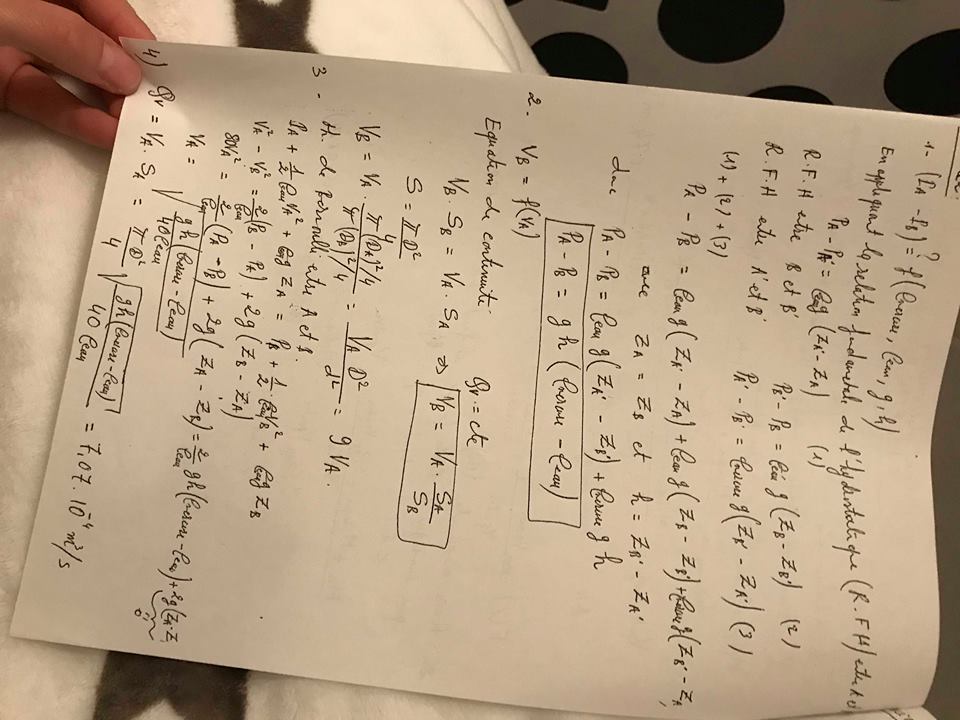 1- (PA - PB)? = f(ρmercure, ρeau, g, h)
En appliquant la relation fondamentale de l'hydrostatique (R.F.H) entre A et
PA - PA' = ρeau g (ZA' - ZA) (1)
R.F.H entre B et B' PB' - PB = ρeau g (ZB - ZB') (2)
R.F.H entre A' et B' PA' - PB' = ρmercure g (ZB' - ZA') (3)
(1) + (2) + (3)
PA - PB = ρeau g (ZA' - ZA) + ρeau g (ZB - ZB') + ρmercure g (ZB' - ZA'
avec ZA = ZB et h = ZB' - ZA'
donc PA - PB = ρeau g (ZA' - ZB') + ρmercure g h
PA - PB = g h (ρmercure - ρeau)
2- VB = f(VA)
Equation de continuité Qv = cte
VB . SB = VA . SA => VB = VA . SA / SB
S = π D² / 4
VB = VA . π(DA)²/4 / π(DB)²/4 = VA D² / d² = 9 VA.
3 -
th. de bernoulli entre A et B
PA + 1/2 ρeau VA² + ρeau g ZA = PB + 1/2 . ρeau VB² + ρeau g ZB
VA² - VB² = 2/ρeau (PB - PA) + 2g (ZB - ZA)
80VA² = 2/ρeau (PA - PB) + 2g (ZA - ZB) = 2/ρeau gh (ρmercure - ρeau) + 2g (ZA - Z
0
VA = √(gh (ρmercure - ρeau) / 40 ρeau)
4) Qv = VA . SA = π D² / 4 √(gh (ρmercure - ρeau) / 40 ρeau) = 7,07 . 10⁻⁴ m³/s